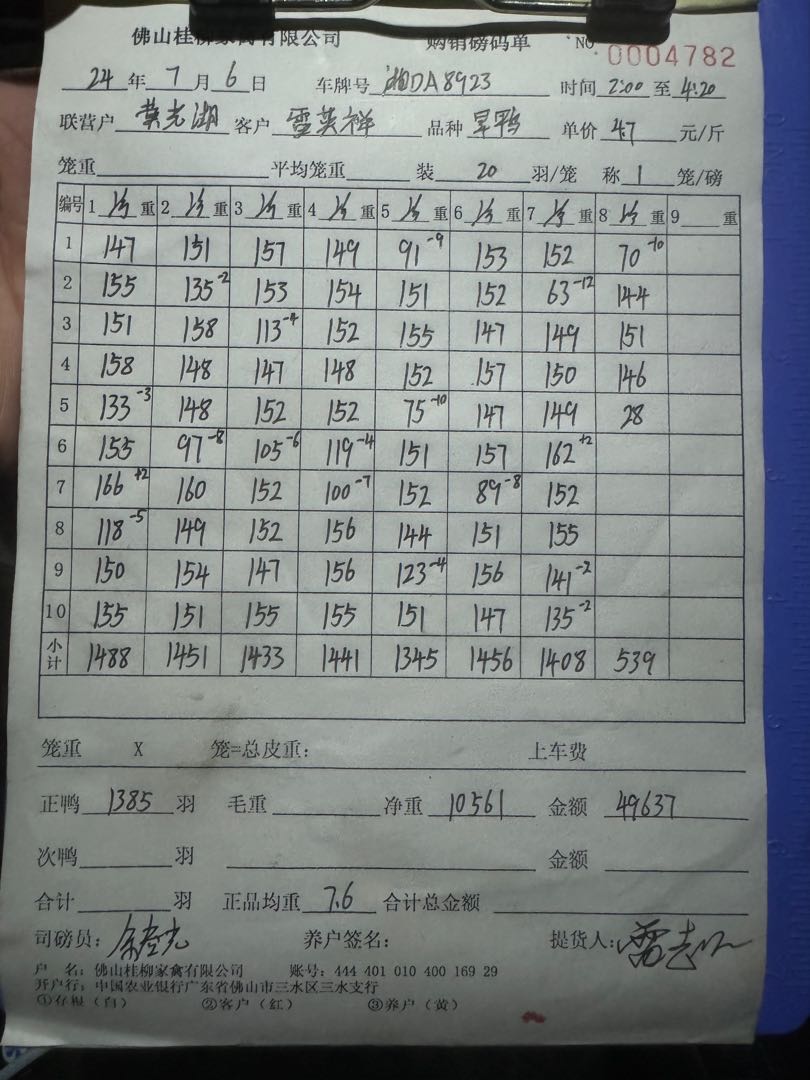 佛山桂柳家禽有限公司 购销磅码单 NO 0004782
24 年 7 月 6 日 车牌号 湘DA8923 时间 2:00 至 4:20
联营户 客户 品种 旱鸭 单价 4.7 元/斤
笼重 平均笼重 装 20 羽/笼 称 1 笼/磅
编号 1 重 2 重 3 重 4 重 5 重 6 重 7 重 8 重 9 重
1 147 151 157 149 91-9 153 152 70-10
2 155 135-2 153 154 151 152 63-12 144
3 151 158 113-4 152 155 147 149 151
4 158 148 147 148 152 157 150 146
5 133-3 148 152 152 75-10 147 149 28
6 155 97-8 105-6 119-4 151 157 162+2
7 166+2 160 152 100-7 152 89-8 152
8 118-5 149 152 156 144 151 155
9 150 154 147 156 123-4 156 141-2
10 155 151 155 155 151 147 135-2
小计 1488 1451 1433 1441 1345 1456 1408 539
笼重 X 笼=总皮重: 上车费
正鸭 1385 羽 毛重 净重 10561 金额 49637
次鸭 羽 金额
合计 羽 正品均重 7.6 合计总金额
司磅员: 养户签名: 提货人:
户 名: 佛山桂柳家禽有限公司 账号: 444 401 010 400 169 29
开户行: 中国农业银行广东省佛山市三水区三水支行
①存根（白） ②客户（红） ③养户（黄）